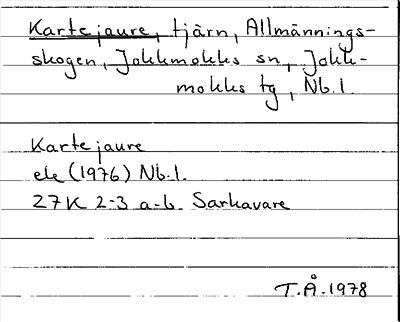 Kartejaure, tjärn, Allmännings-
skogen, Jokkmokks sn, Jokk-
mokks tg, Nb.l.
Kartejaure
ek (1976) Nb.l.
27K 2-3 a-b Sarkavare
T.Å.1978